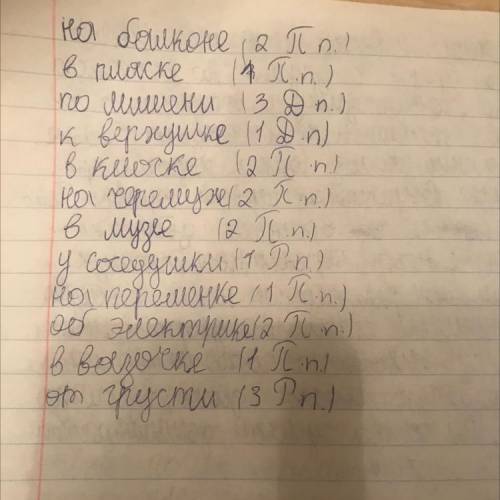 на балконе (2 П п.)
в пляске (1 П.п.)
по мишени (3 Д п.)
к верхушке (1 Д.п)
в киоске (2 П.п)
на черемухе (2 П п.)
в музее (2 П.п.)
у соседушки (1 Р п.)
на переменке (1 П.п.)
об электрике (2 П п.)
в вазочке (1 П.п)
от грусти (3 Р п.)